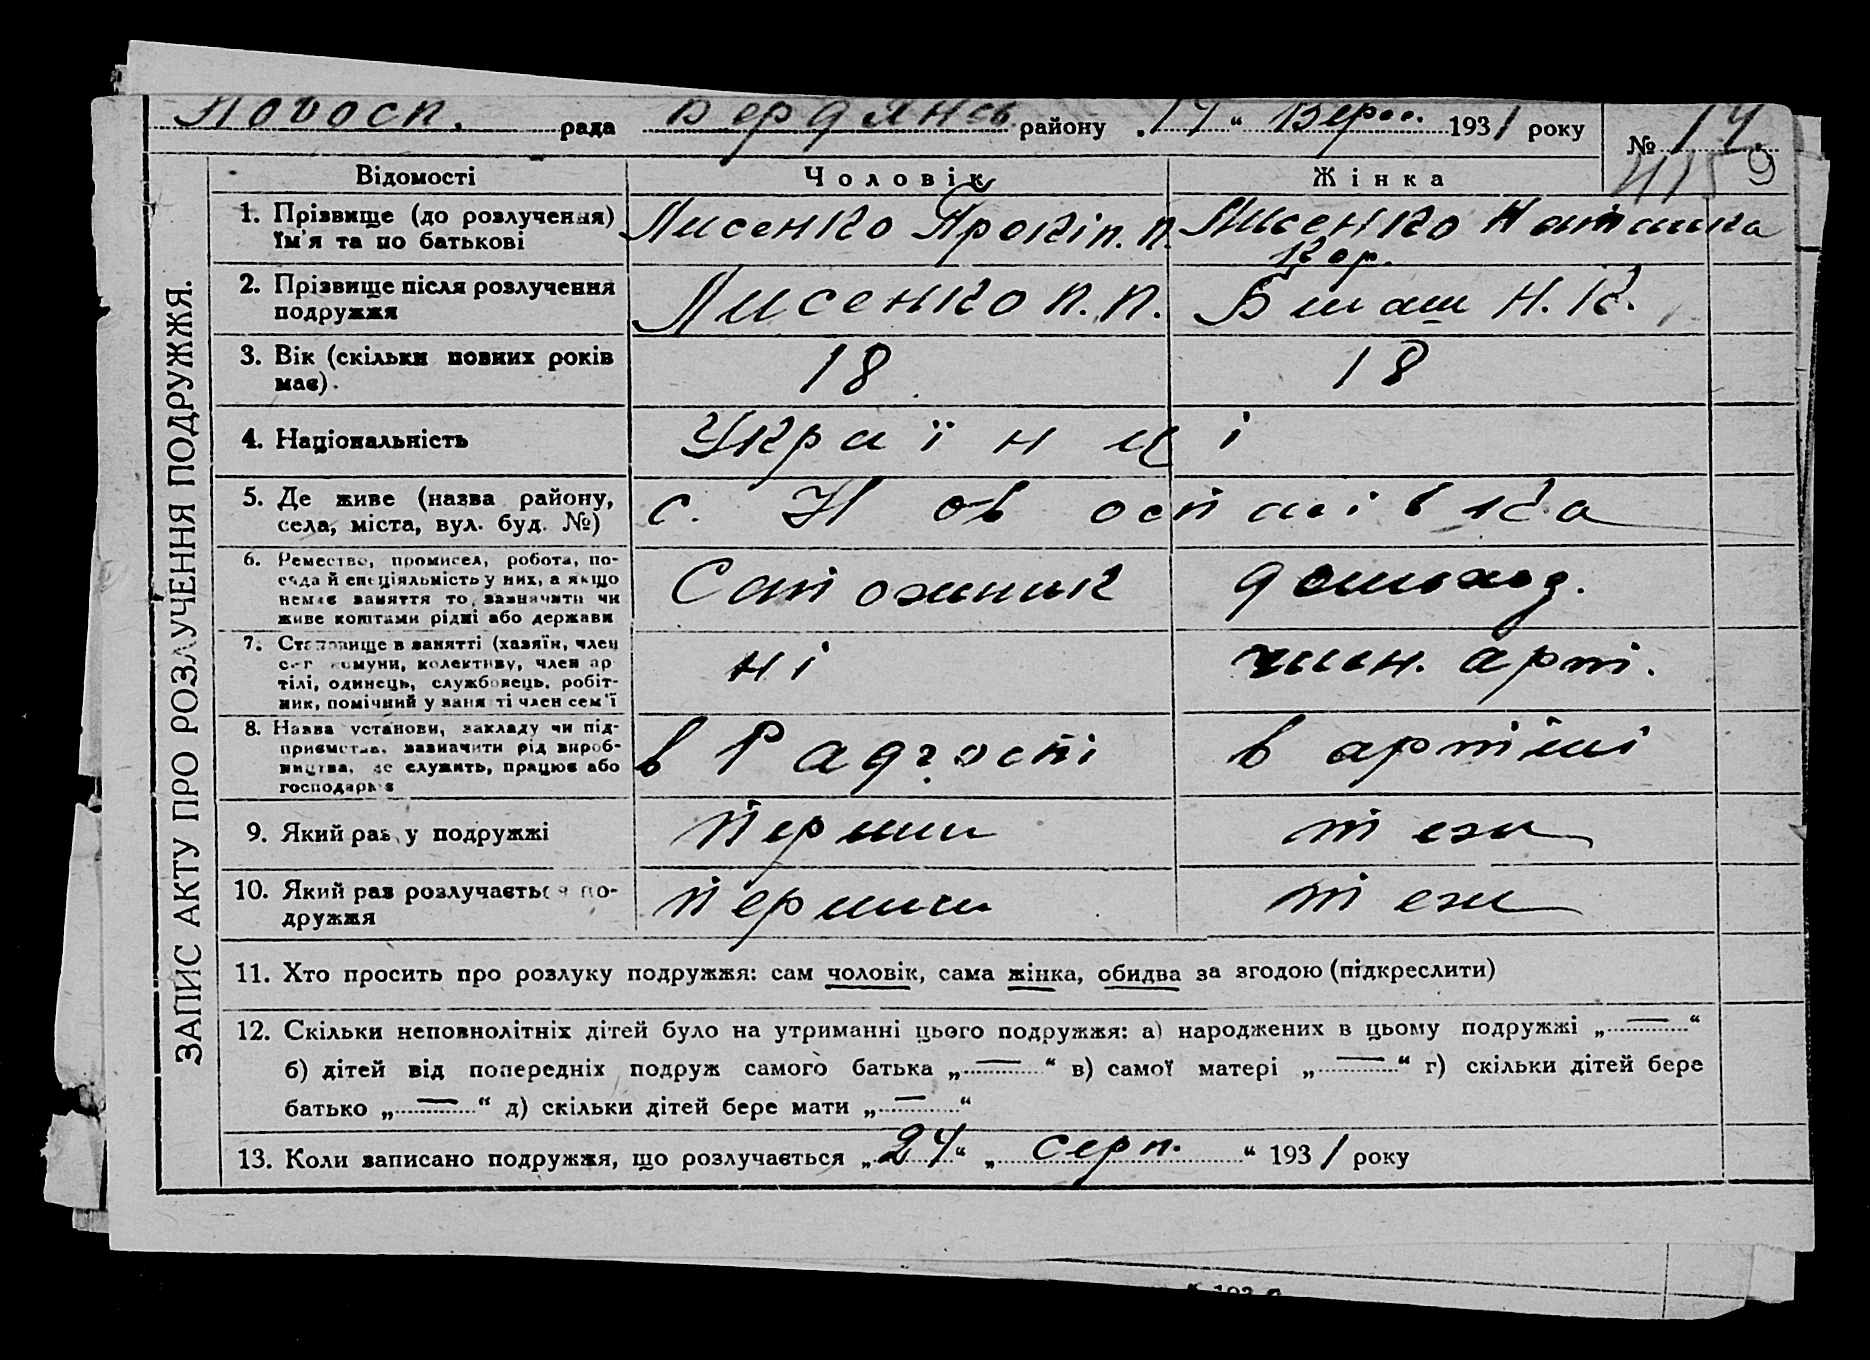 Новосп. рада Бердянсь району „14“ Верес. 1931 року № 14.
4159
Відомості Чоловік Жінка
1. Прізвище (до розлучення) Лисенко Прокіп. П. Лисенко Наташка
Їм'я та по батькові Кор.
2. Прізвище після розлучення Лисенко П. П. Білаш Н. К.
подружжя
3. Вік (скільки повних років 18 18
має).
4. Національність Українці
5. Де живе (назва району, с. Новоспасівка
села, міста, вул. буд. №)
6. Ремество, промисел, робота, по- Сапожник домоход.
сада й спеціяльність у них, а якщо
немає заняття то зазначити чи
живе коштами рідні або держави
7. Становище в занятті (хазяїн, член ні член. арт.
с-г комуни, колективу, член ар-
тілі, одинець, службовець, робіт-
ник, помічний у занятті член сем'ї
8. Назва установи, закладу чи під- в Радгоспі в артілі
приємства, зазначити рід вироб-
ництва, де служить, працює або
господарює
9. Який раз у подружжі перший теж
10. Який раз розлучається по- перший теж
дружжя
11. Хто просить про розлуку подружжя: сам чоловік, сама жінка, обидва за згодою (підкреслити)
12. Скільки неповнолітніх дітей було на утриманні цього подружжя: а) народжених в цьому подружжі „—“
б) дітей від попередніх подруж самого батька „—“ в) самої матері „—“ г) скільки дітей бере
батько „—“ д) скільки дітей бере мати „—“
13. Коли записано подружжя, що розлучається „24“ „серп.“ 1931 року
ЗАПИС АКТУ ПРО РОЗЛУЧЕННЯ ПОДРУЖЖЯ.